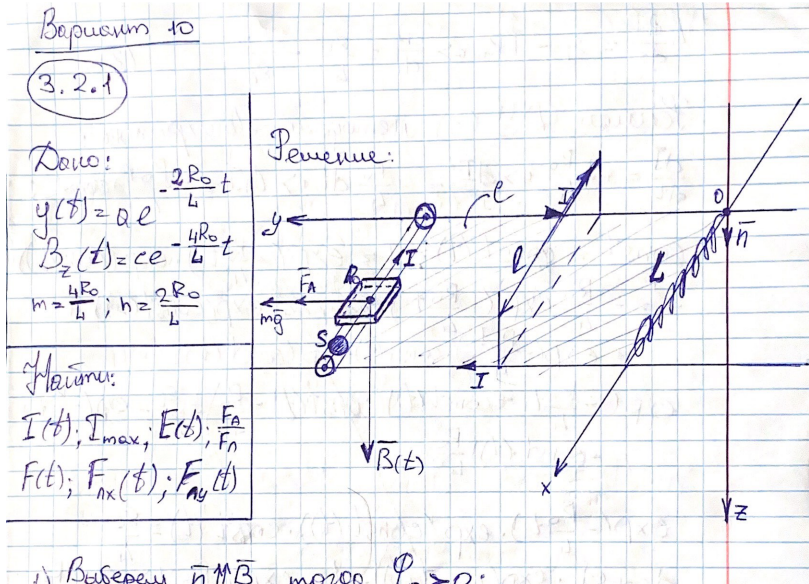 Вариант 10
3.2.1
Дано:
y(t)=ae^{-\frac{2R_0}{L}t}
B_z(t)=ce^{-\frac{4R_0}{L}t}
m=\frac{4R_0}{L}; n=\frac{2R_0}{L}
Найти:
I(t); I_{max}; E(t); \frac{F_A}{F_л}
F(t); F_{лx}(t); F_{лy}(t)
Решение:
y
e
I
O
n̄
l
L
I
R_0
F̄_A
mḡ
S
I
B̄(t)
x
z
1) Выберем n̄⇈B̄ тогда